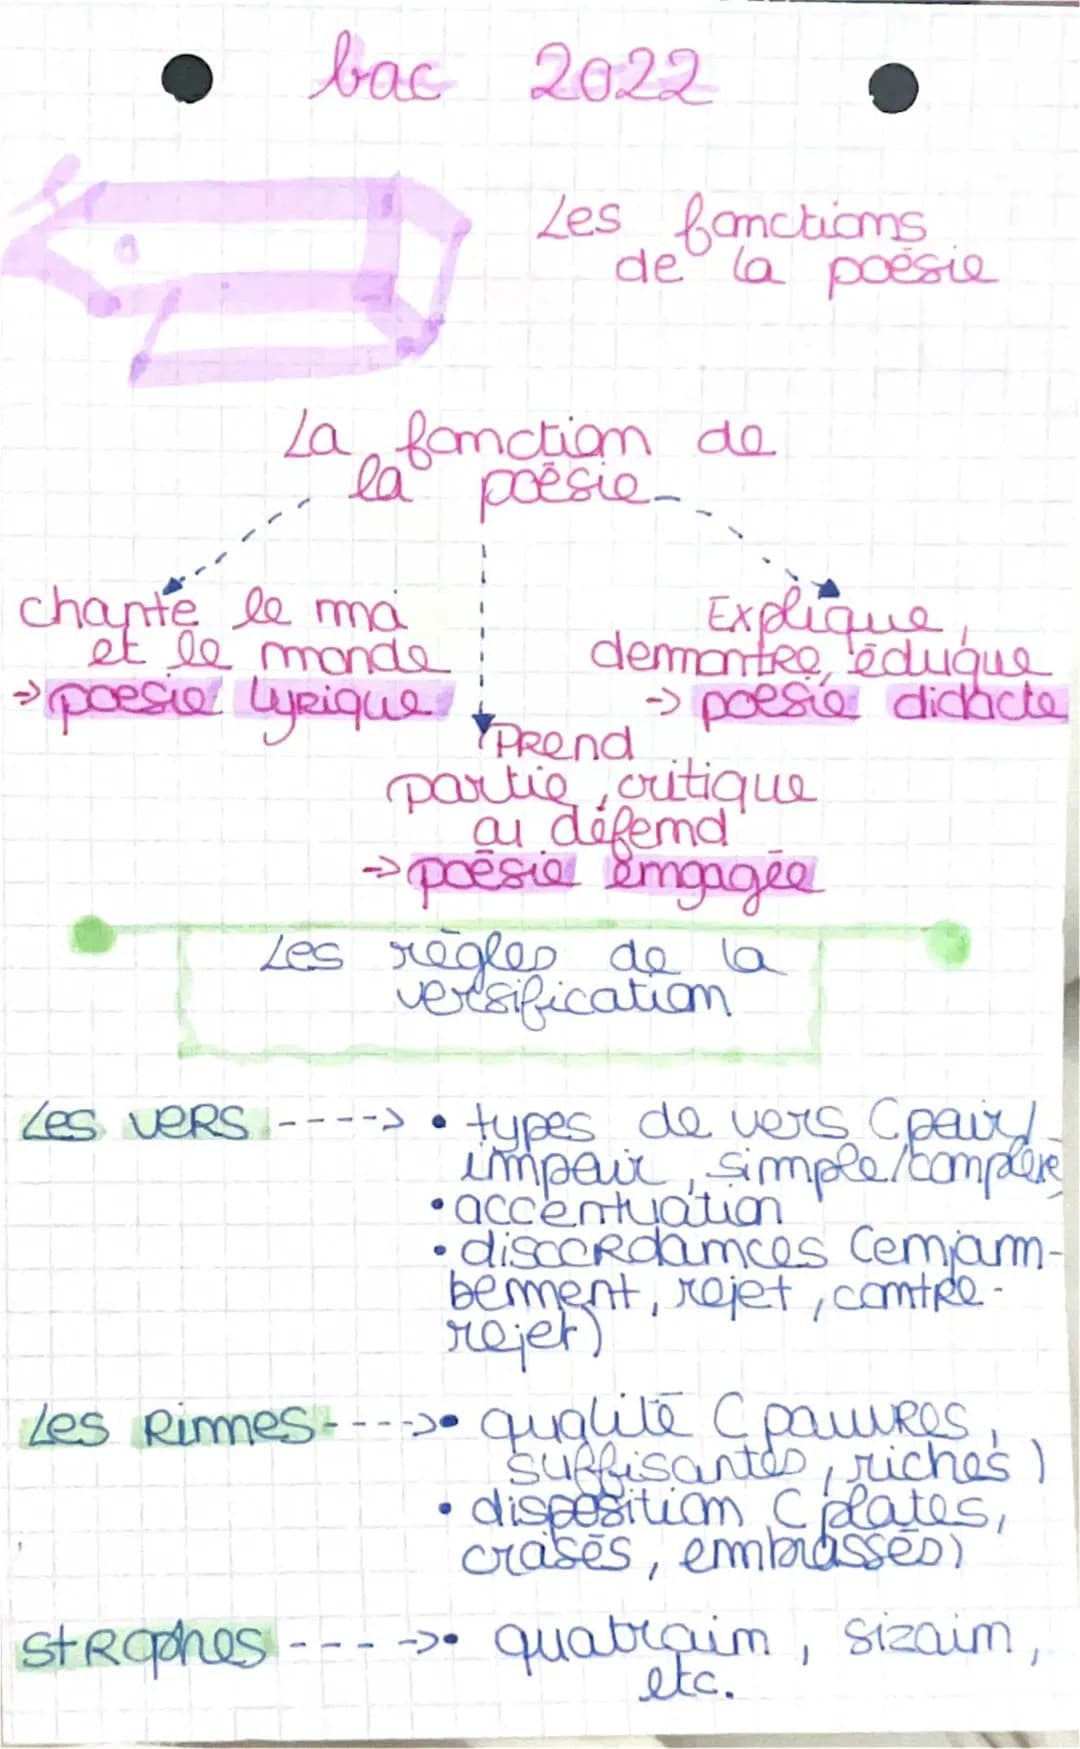 bac 2022
Les fonctions
de la poésie
La fonction de
la poésie
chante le moi
et le monde
-> poesie lyrique
Explique,
demontre, éduque
-> poésie didacte
Prend
partie, critique
ou défend
-> poésie engagée
Les règles de la
versification
Les vers ----> • types de vers (pair/
impair, simple/complexe)
• accentuation
• discordances (enjam-
bement, rejet, contre-
rejet)
Les Rimes ----> • qualité (pauvres,
suffisantes, riches)
• disposition (plates,
croisés, embrassés)
Strophes ----> • quatrain, sizain,
etc.